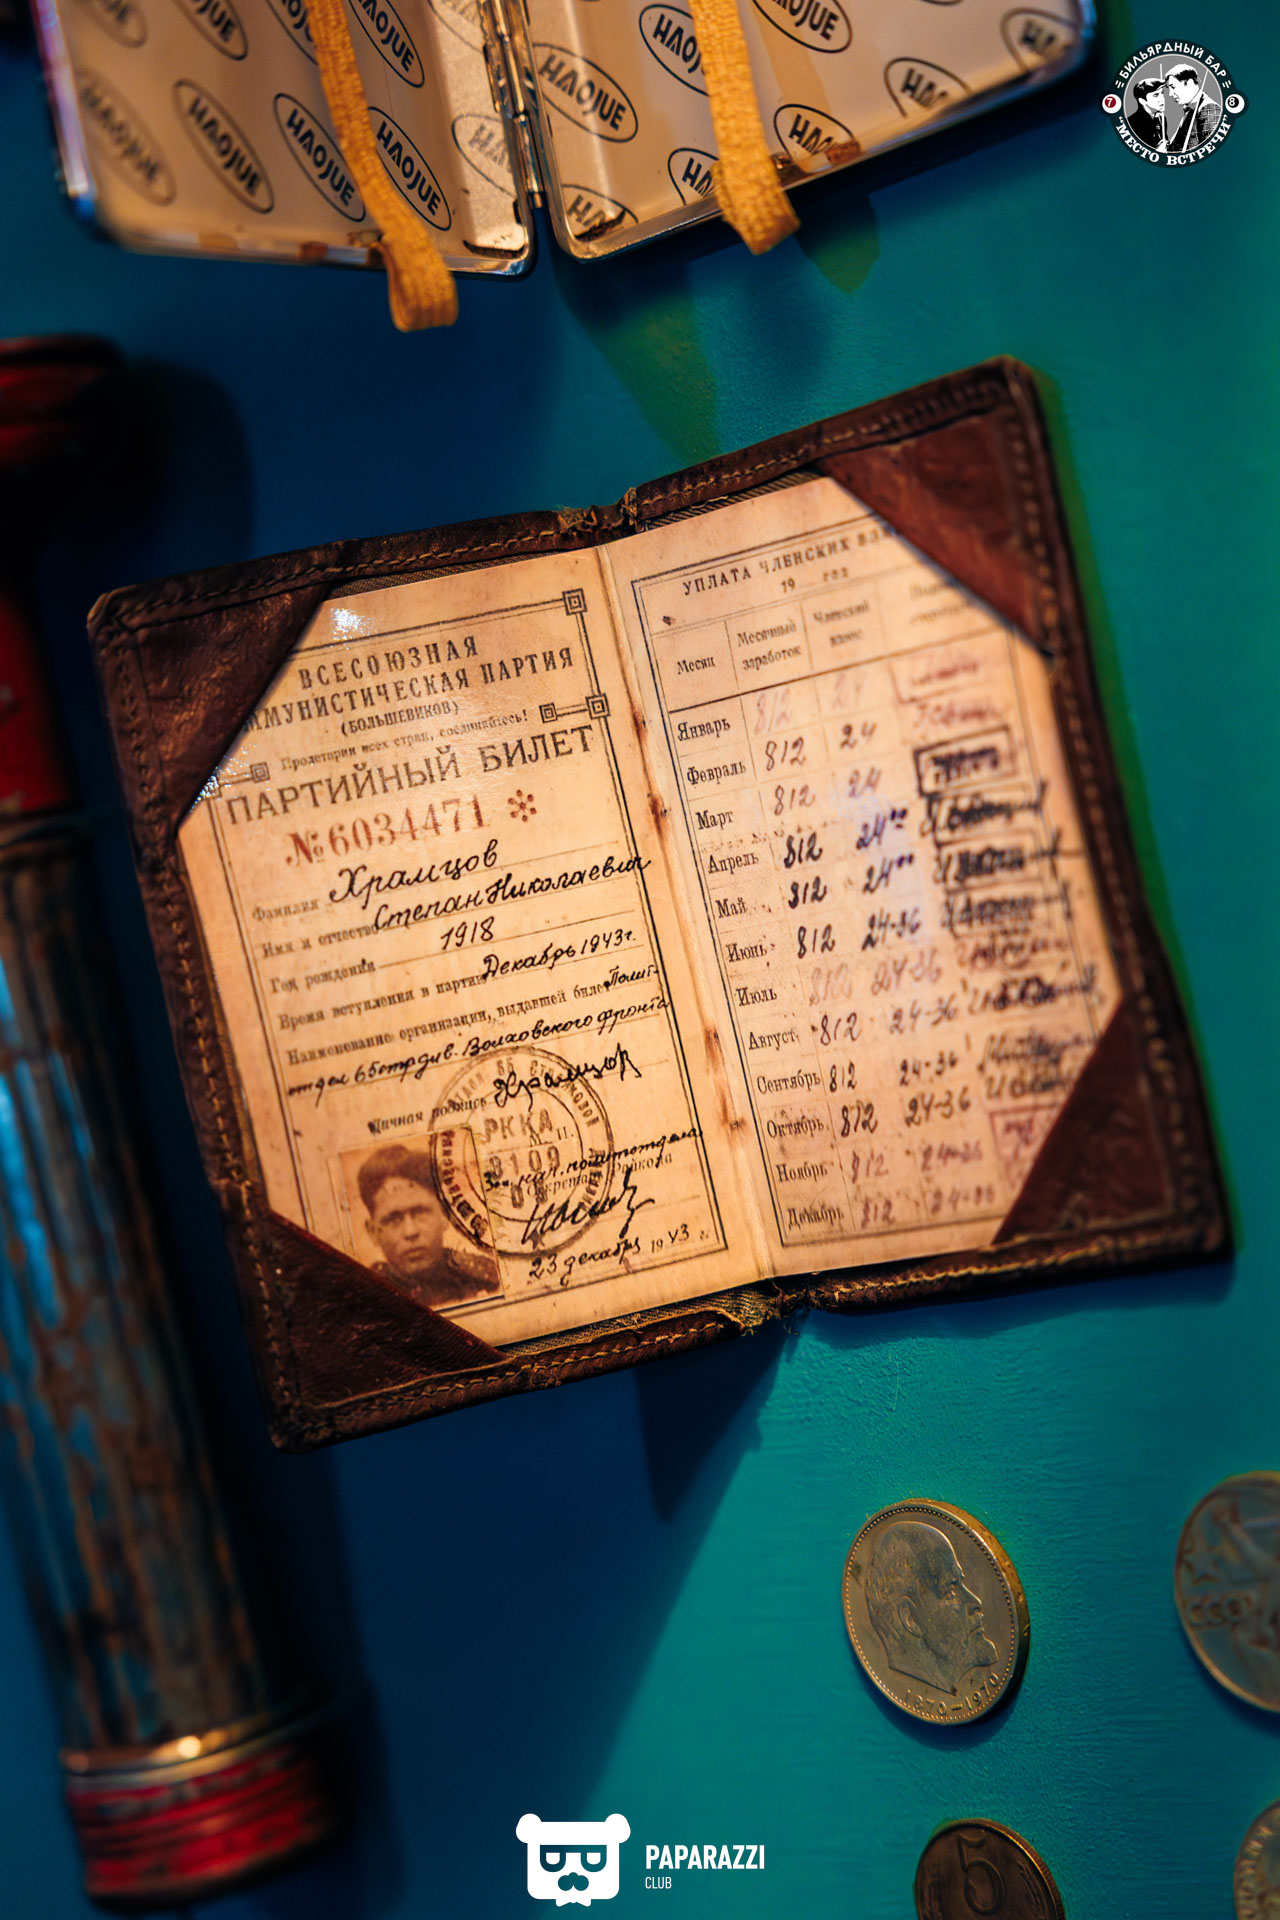 HAOJUE
HAOJUE
HAOJUE
HAOJUE
HAOJUE
HAOJUE
БИЛЬЯРДНЫЙ БАР
7
8
"МЕСТО ВСТРЕЧИ"
ВСЕСОЮЗНАЯ
ММУНИСТИЧЕСКАЯ ПАРТИЯ
(БОЛЬШЕВИКОВ)
Пролетарии всех стран, соединяйтесь!
ПАРТИЙНЫЙ БИЛЕТ
№6034471
Фамилия Храмцов
Имя и отчество Степан Николаевич
Год рождения 1918
Время вступления в партию Декабрь 1943 г.
Наименование организации, выдавшей билет Полит-
отдел 65 стр див. Волховского фронта
Личная подпись Храмцов
РККА
М. П.
Зам. нач. политотдела
Секретарь Райкома
23 декабря 1943 г.
УПЛАТА ЧЛЕНСКИХ ВЗН
19 год
Месяц Месячный заработок Членский взнос
Январь 812 24
Февраль 812 24
Март 812 24
Апрель 812 24
Май 812 24
Июнь 812 24-36
Июль 812 24-36
Август 812 24-36
Сентябрь 812 24-36
Октябрь 812 24-36
Ноябрь 812 24-36
Декабрь 812 24-36
1870-1970
СССР
5
PAPARAZZI
CLUB